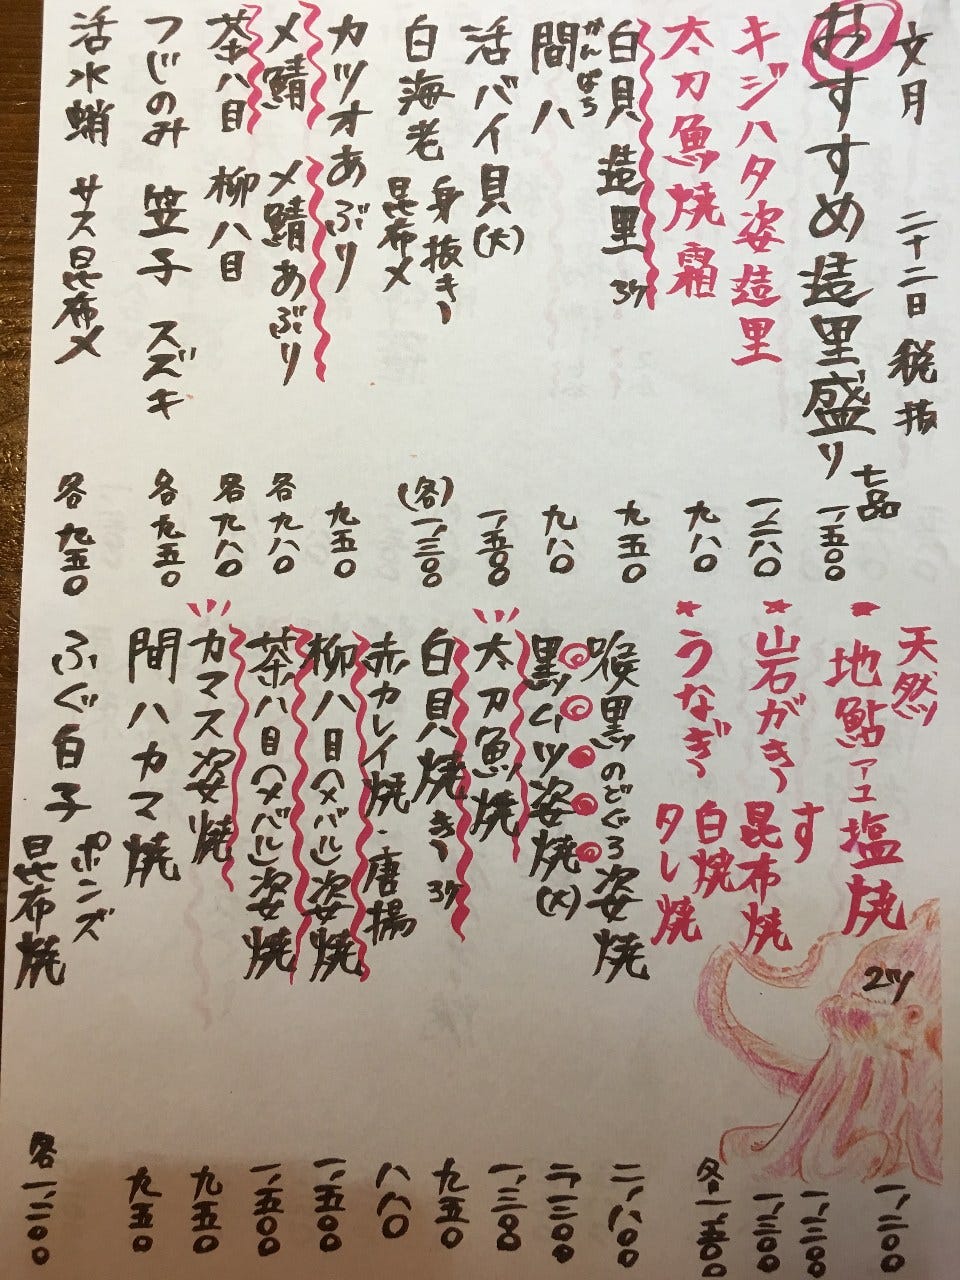 文月 二十二日 税抜
おすすめ造里盛り 七品 一、五〇〇
キジハタ姿造里 一、二八〇
太刀魚焼霜 九八〇
白貝造里 3ケ 九五〇
間八 かんぱち 九八〇
活バイ貝(大) 一、五〇〇
白海老 身抜き 昆布〆 (各)一、三〇〇
カツオあぶり 九五〇
〆鯖 〆鯖あぶり 各九八〇
茶八目 柳八目 各九八〇
つじのみ 笠子 スズキ 各九五〇
活水蛸 サス昆布〆 各九五〇
天然
地鮎アユ塩焼 2ツ 一、二〇〇
岩がき す 一、二八〇
昆布焼 一、三〇〇
うなぎ 白焼 タレ焼 各一、五〇〇
喉黒のどぐろ姿焼 二、八〇〇
黒ムツ姿焼(大) 二、三〇〇
太刀魚焼
白貝焼き 3ケ 九五〇
赤カレイ焼・唐揚 八八〇
柳八目(メバル)姿焼 一、五〇〇
茶八目(メバル)姿焼 一、五〇〇
カマス姿焼 九五〇
間八カマ焼 九五〇
ふぐ白子 ポンズ 昆布焼 各一、二〇〇